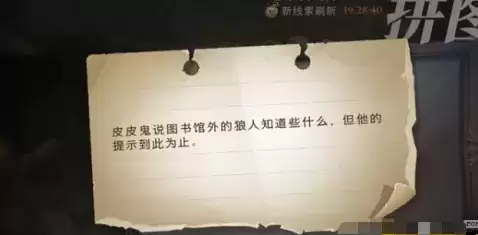 新线索刷新 19:26:40
拼图
皮皮鬼说图书馆外的狼人知道些什么，但他的
提示到此为止。